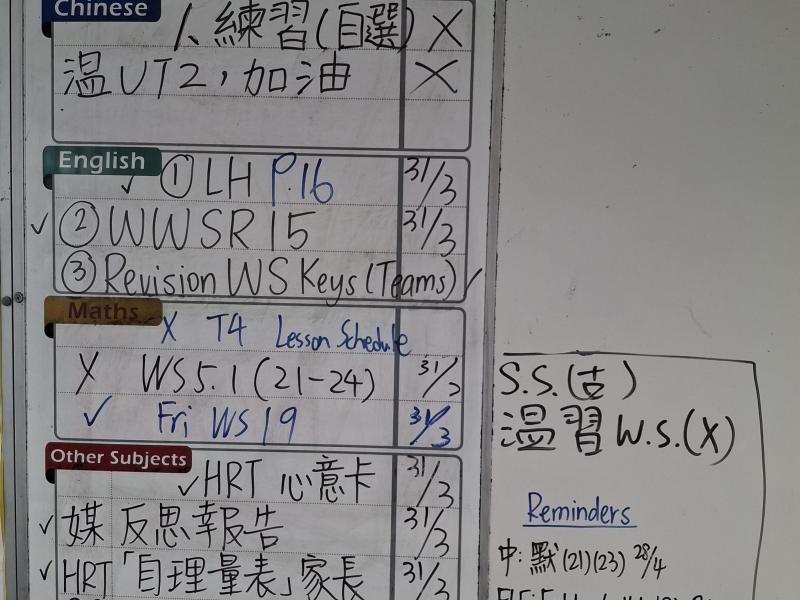 Chinese
1. 練習(自選) X
温UT2，加油 X
English
✓ ① LH P.16 31/3
✓ ② WWSR 15 31/3
③ Revision WS Keys (Teams) ✓
Maths
X T4 Lesson Schedule
X WS 5.1 (21-24) 31/2
✓ Fri WS 19 31/3
Other Subjects
✓ HRT 心意卡 31/3
✓ 媒 反思報告 31/3
✓ HRT「自理量表」家長 31/3
S.S.(古)
温習 W.S.(X)
Reminders
中: 默(21)(23) 28/4